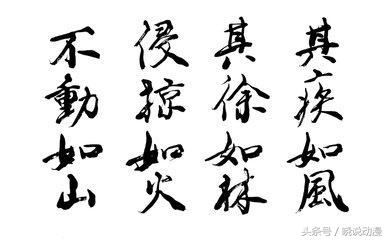 其疾如風
其徐如林
侵掠如火
不動如山
头条号/瞬说动漫